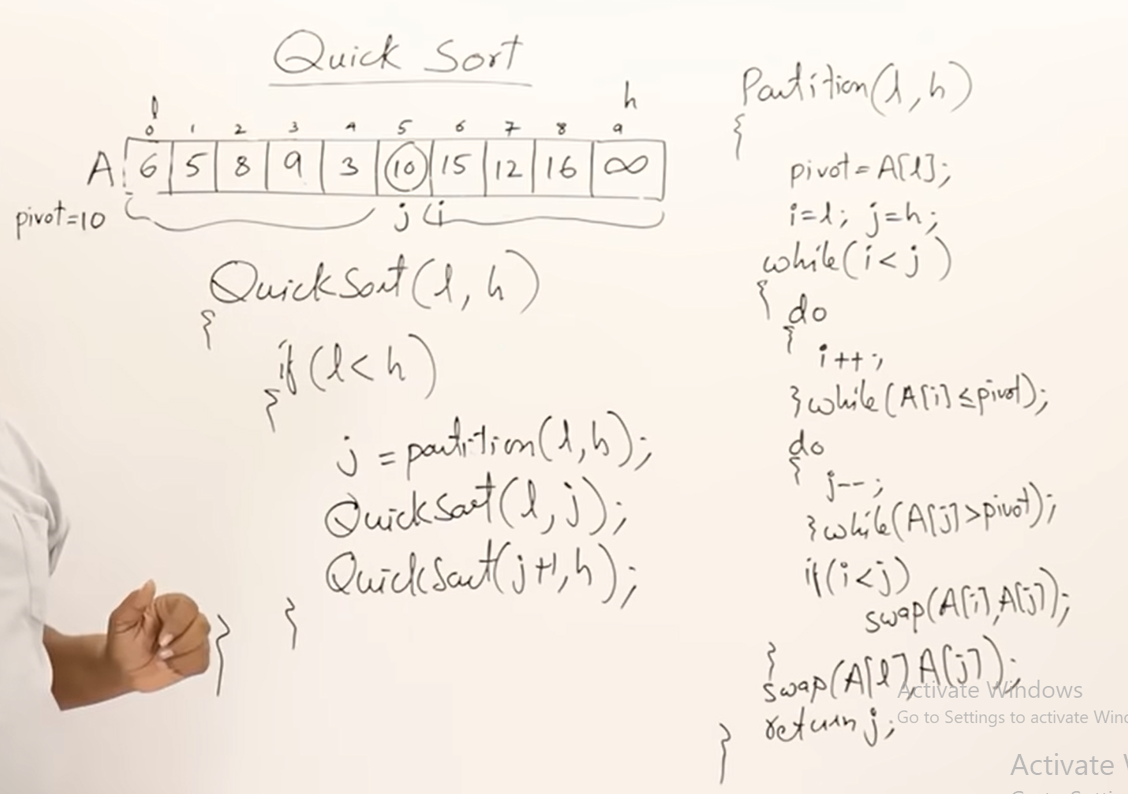 Quick Sort
l h
0 1 2 3 4 5 6 7 8 9
A 6 5 8 9 3 10 15 12 16 ∞
pivot=10 j i
QuickSort(l, h)
{
if(l<h)
{
j = partition(l,h);
QuickSort(l, j);
QuickSort(j+1,h);
}
}
Partition(l,h)
{
pivot=A[l];
i=l; j=h;
while(i<j)
{ do
{
i++;
}while(A[i]≤pivot);
do
{
j--;
}while(A[j]>pivot);
if(i<j)
swap(A[i],A[j]);
}
swap(A[l],A[j]);
return j;
}
Activate Windows
Go to Settings to activate Wind
Activate